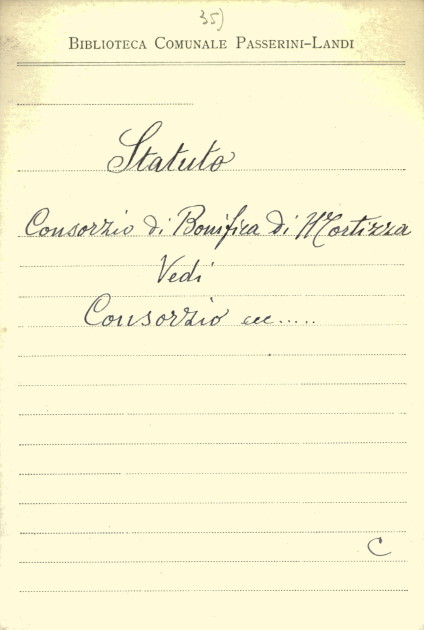 35)
Biblioteca Comunale Passerini-Landi
Statuto
Consorzio di Bonifica di Mortizza
Vedi
Consorzio ecc.....
C